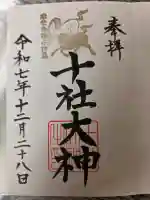 奉拝
十社大神
令和七年十二月二十八日